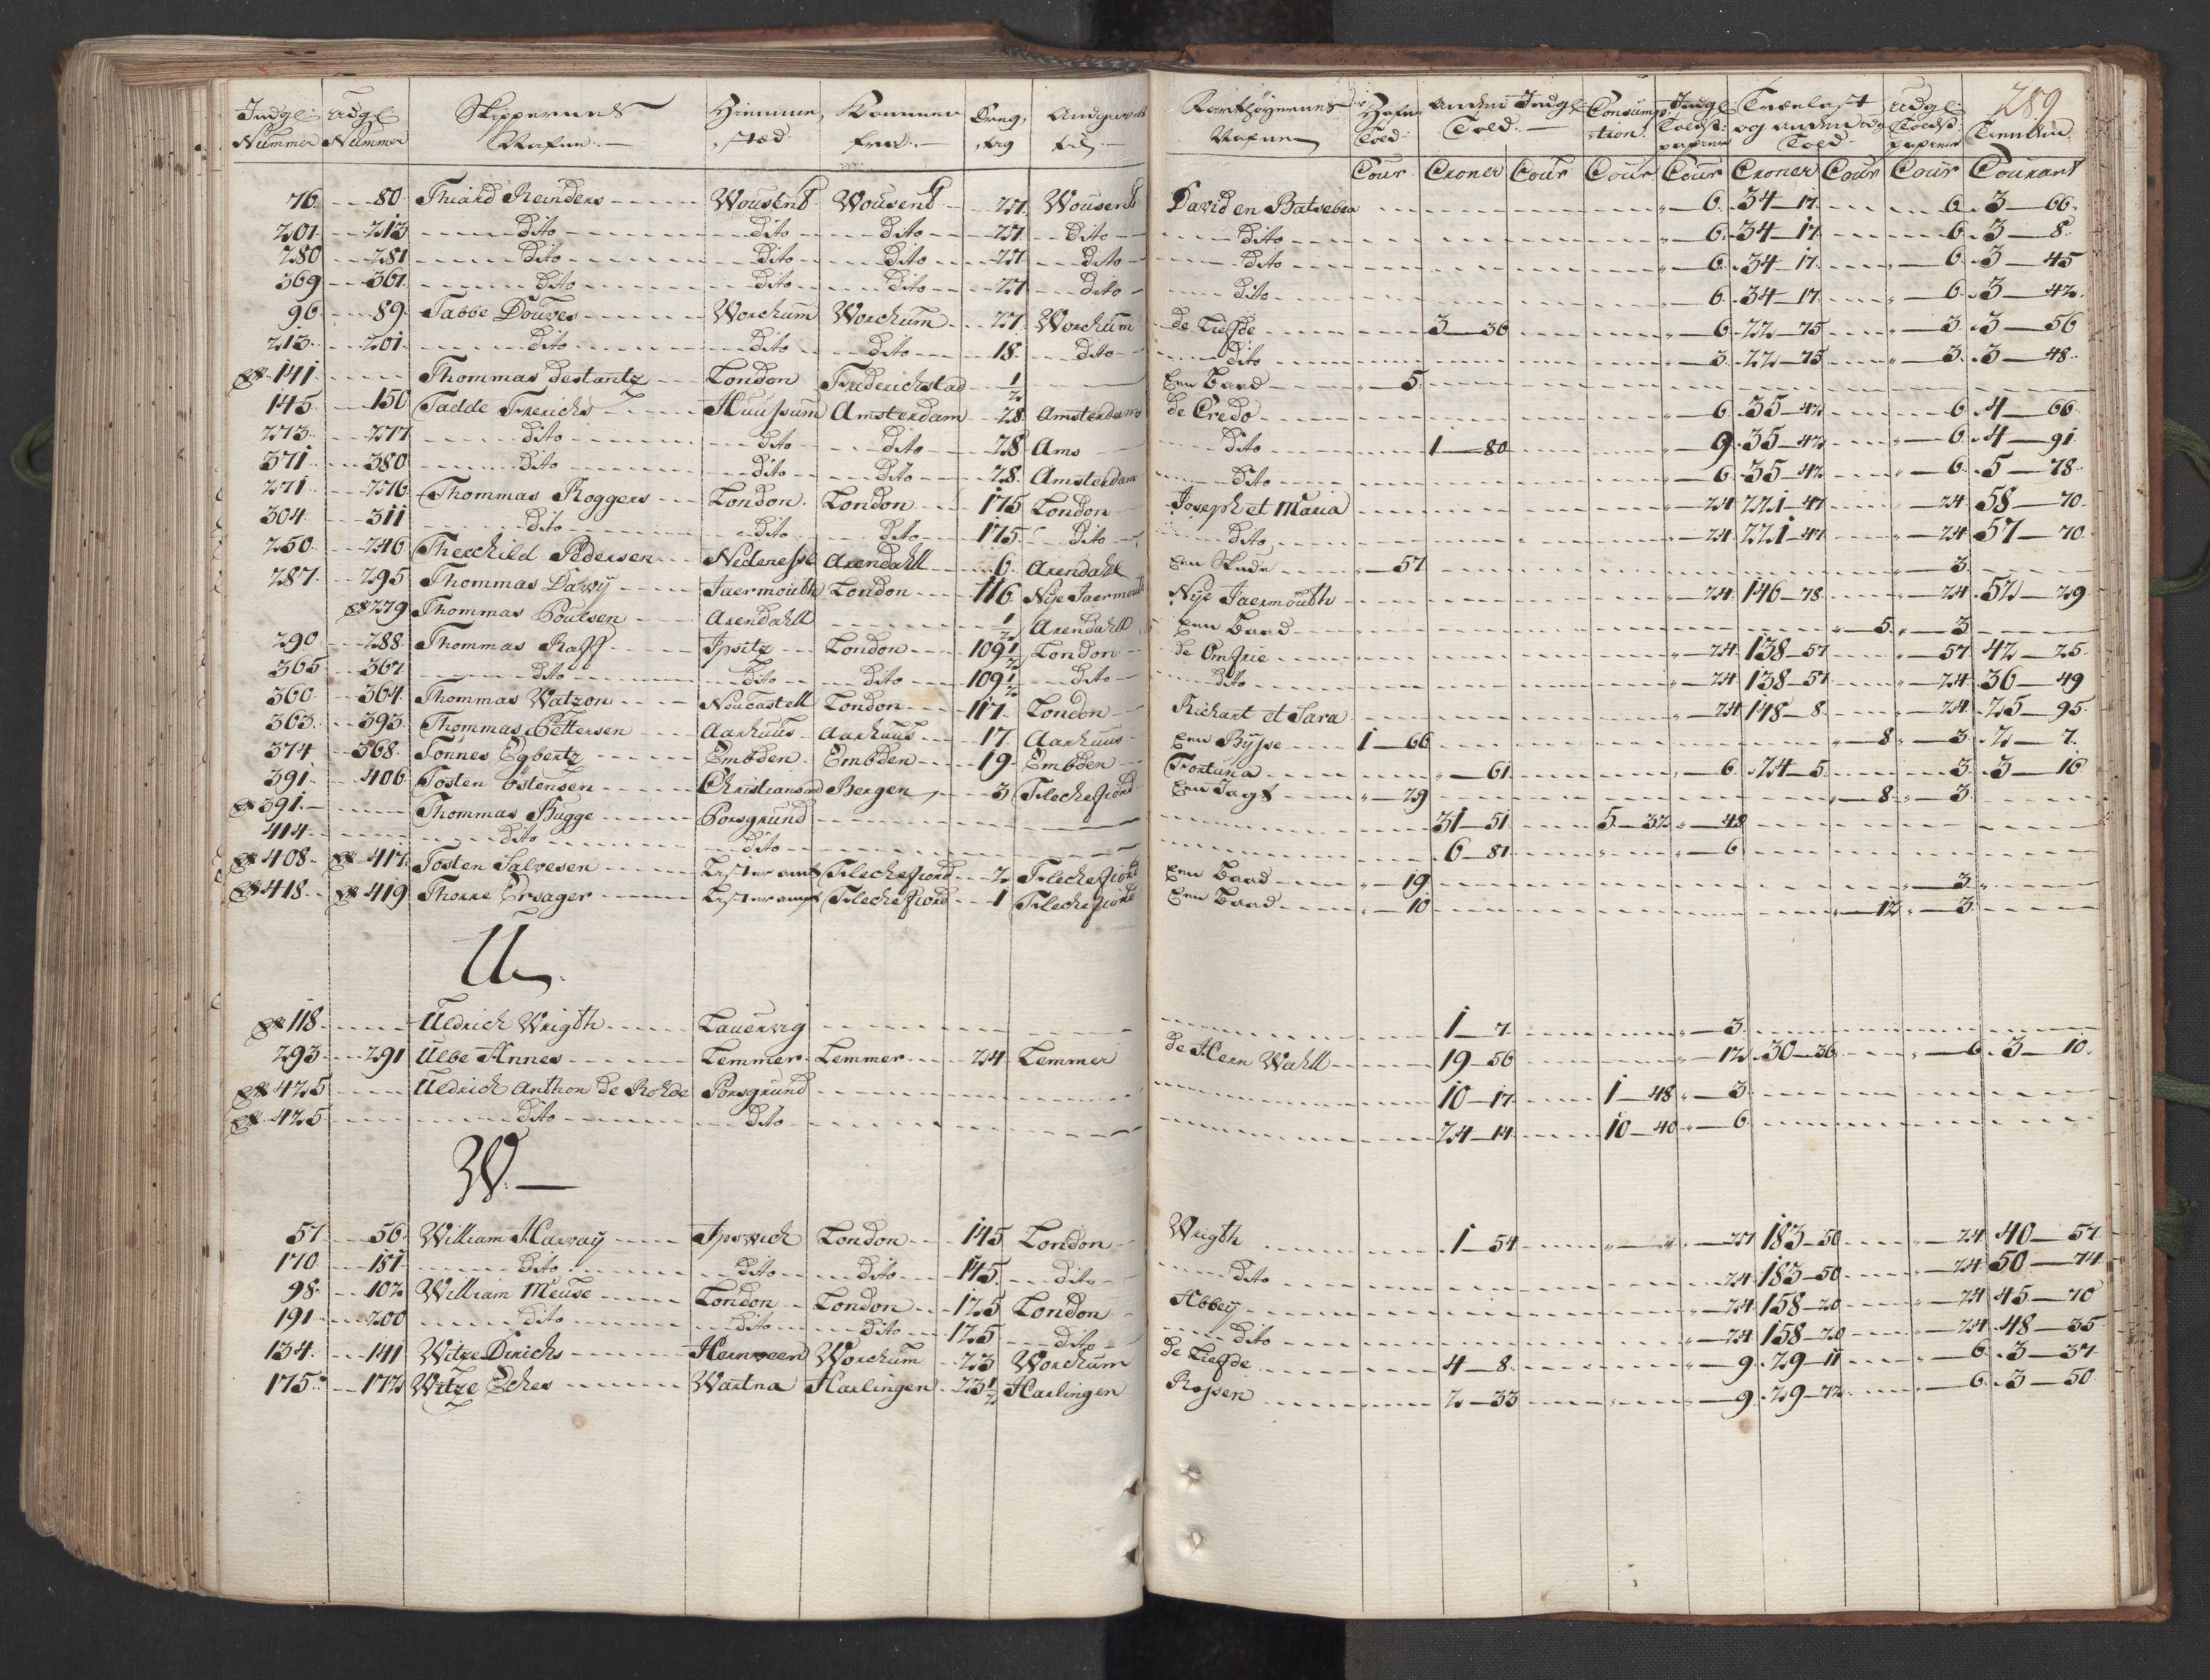 289
Indg: Udg: Skippernes Hiemme, Kommen Dreg, Andgivet
Nummer Nummer Nafne.— sted fra.— tig til.—
Fartøyernes Hafne Anden Indg: Consump Indg: Trælast Udg:
Nafne Told: Told.— tion: Toldst: og anden udg Toldst: Tienden
papiirer Told papiirer
Cour Croner Cour Cour Cour Croner Cour Cour Courant
76 80 Thiard Reinders Wousend Wousend 27 Wousend David en Batseba 6 34—17 6 3—66
201 213 Dito Dito Dito 27 Dito Dito 6 34—17 6 3—8
280 281 Dito Dito Dito 27 Dito Dito 6 34—17 6 3—45
369 361 Dito Dito Dito 27 Dito Dito 6 34—17 6 3—42
96 89 Tabbe Douwes Worchum Worchum 27 Worchum de Liefde 3—36 6 22—75 3 3—56
213 201 Dito Dito Dito 18 Dito Dito 3 22—75 3 3—48
141 Thommas Destantz London Friderichstad 1/2 Een Baad 5
145 150 Tadde Frerichs Huussum Amsterdam 28 Amsterdam de Credo 6 35—42 6 4—66
273 277 Dito Dito Dito 28 Ams Dito 1—80 9 35—42 6 4—91
371 380 Dito Dito Dito 28 Amsterdam Dito 6 35—42 6 5—78
271 276 Thommas Roggers London London 175 London Joseph et Maria 24 221—47 24 58—70
304 311 Dito Dito Dito 175 Dito Dito 24 221—47 24 57—70
250 246 Therchild Pedersen Nedenesse Arendahll 6 Arendahl Een Skude 57 3
287 295 Thommas Darvij Jaermouth London 116 Nye Jaermouth Nye Jaermouth 24 146—78 24 52—29
279 Thommas Poulsen Arendahll 1/2 Arendahll Een Baad 5 3
290 288 Thommas Raff Ipsitz London 109 1/2 London de Omfrie 24 138—57 57 42—25
365 367 Dito Dito Dito 109 1/2 Dito Dito 24 138—57 24 36—49
360 364 Thommas Watzon Neucastell London 117 London Richart et Sara 24 148—8 24 25—95
363 393 Thommas Pettersen Aarhuus Aarhuus 17 Aarhuus Een Bÿsse 1—66 8 3 2—7
374 368 Tönnes Egbertz Embden Embden 19 Embden Fortuna 61 6 24—5 3 3—16
391 406 Tosten Östensen Christiansand Bergen 3 Flechefiord Een Jagt 29 8 3
391 Thommas Bugge Porsgrund 31—51 5—32 48
414 Dito Dito 6—81 6
408 417 Tosten Salvesen Lister amt Flechefiord 2 Flechefiord Een Baad 19 3
418 419 Thorre Ersager Lister amt Flechefiord 1 Flechefiord Een Baad 10 12 3
U.
118 Uldrich Wrigth Lauervig 1—7 3
293 291 Ulbe Annes Lemmer Lemmer 24 Lemmer de Hern Wahll 19—56 12 30—36 6 3—10
425 Uldrich Anthon de Rohde Porsgrund 10—17 1—48 3
425 Dito Dito 24—14 10—40 6
W.—
57 56 William Harvaÿ Ipswich London 145 London Wrigth 1—54 27 183—50 24 40—57
170 181 Dito Dito Dito 145 Dito Dito 24 183—50 24 50—74
98 102 William Meuse London London 125 London Abbeÿ 24 158—20 24 45—70
191 200 Dito Dito Dito 125 Dito Dito 24 158—20 24 48—35
134 141 Witze Dirichs Hernveen Worchum 23 Worchum de Liefde 4—8 9 29—11 6 3—37
175 172 Witze Eches Wartna Harlingen 23 1/2 Harlingen Rosen 2—33 9 29—72 6 3—50